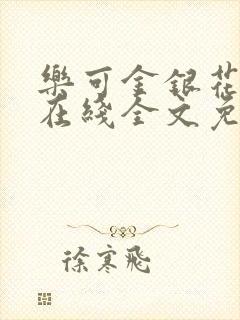 樂可金銀花
在綫全文免
徐寒飛